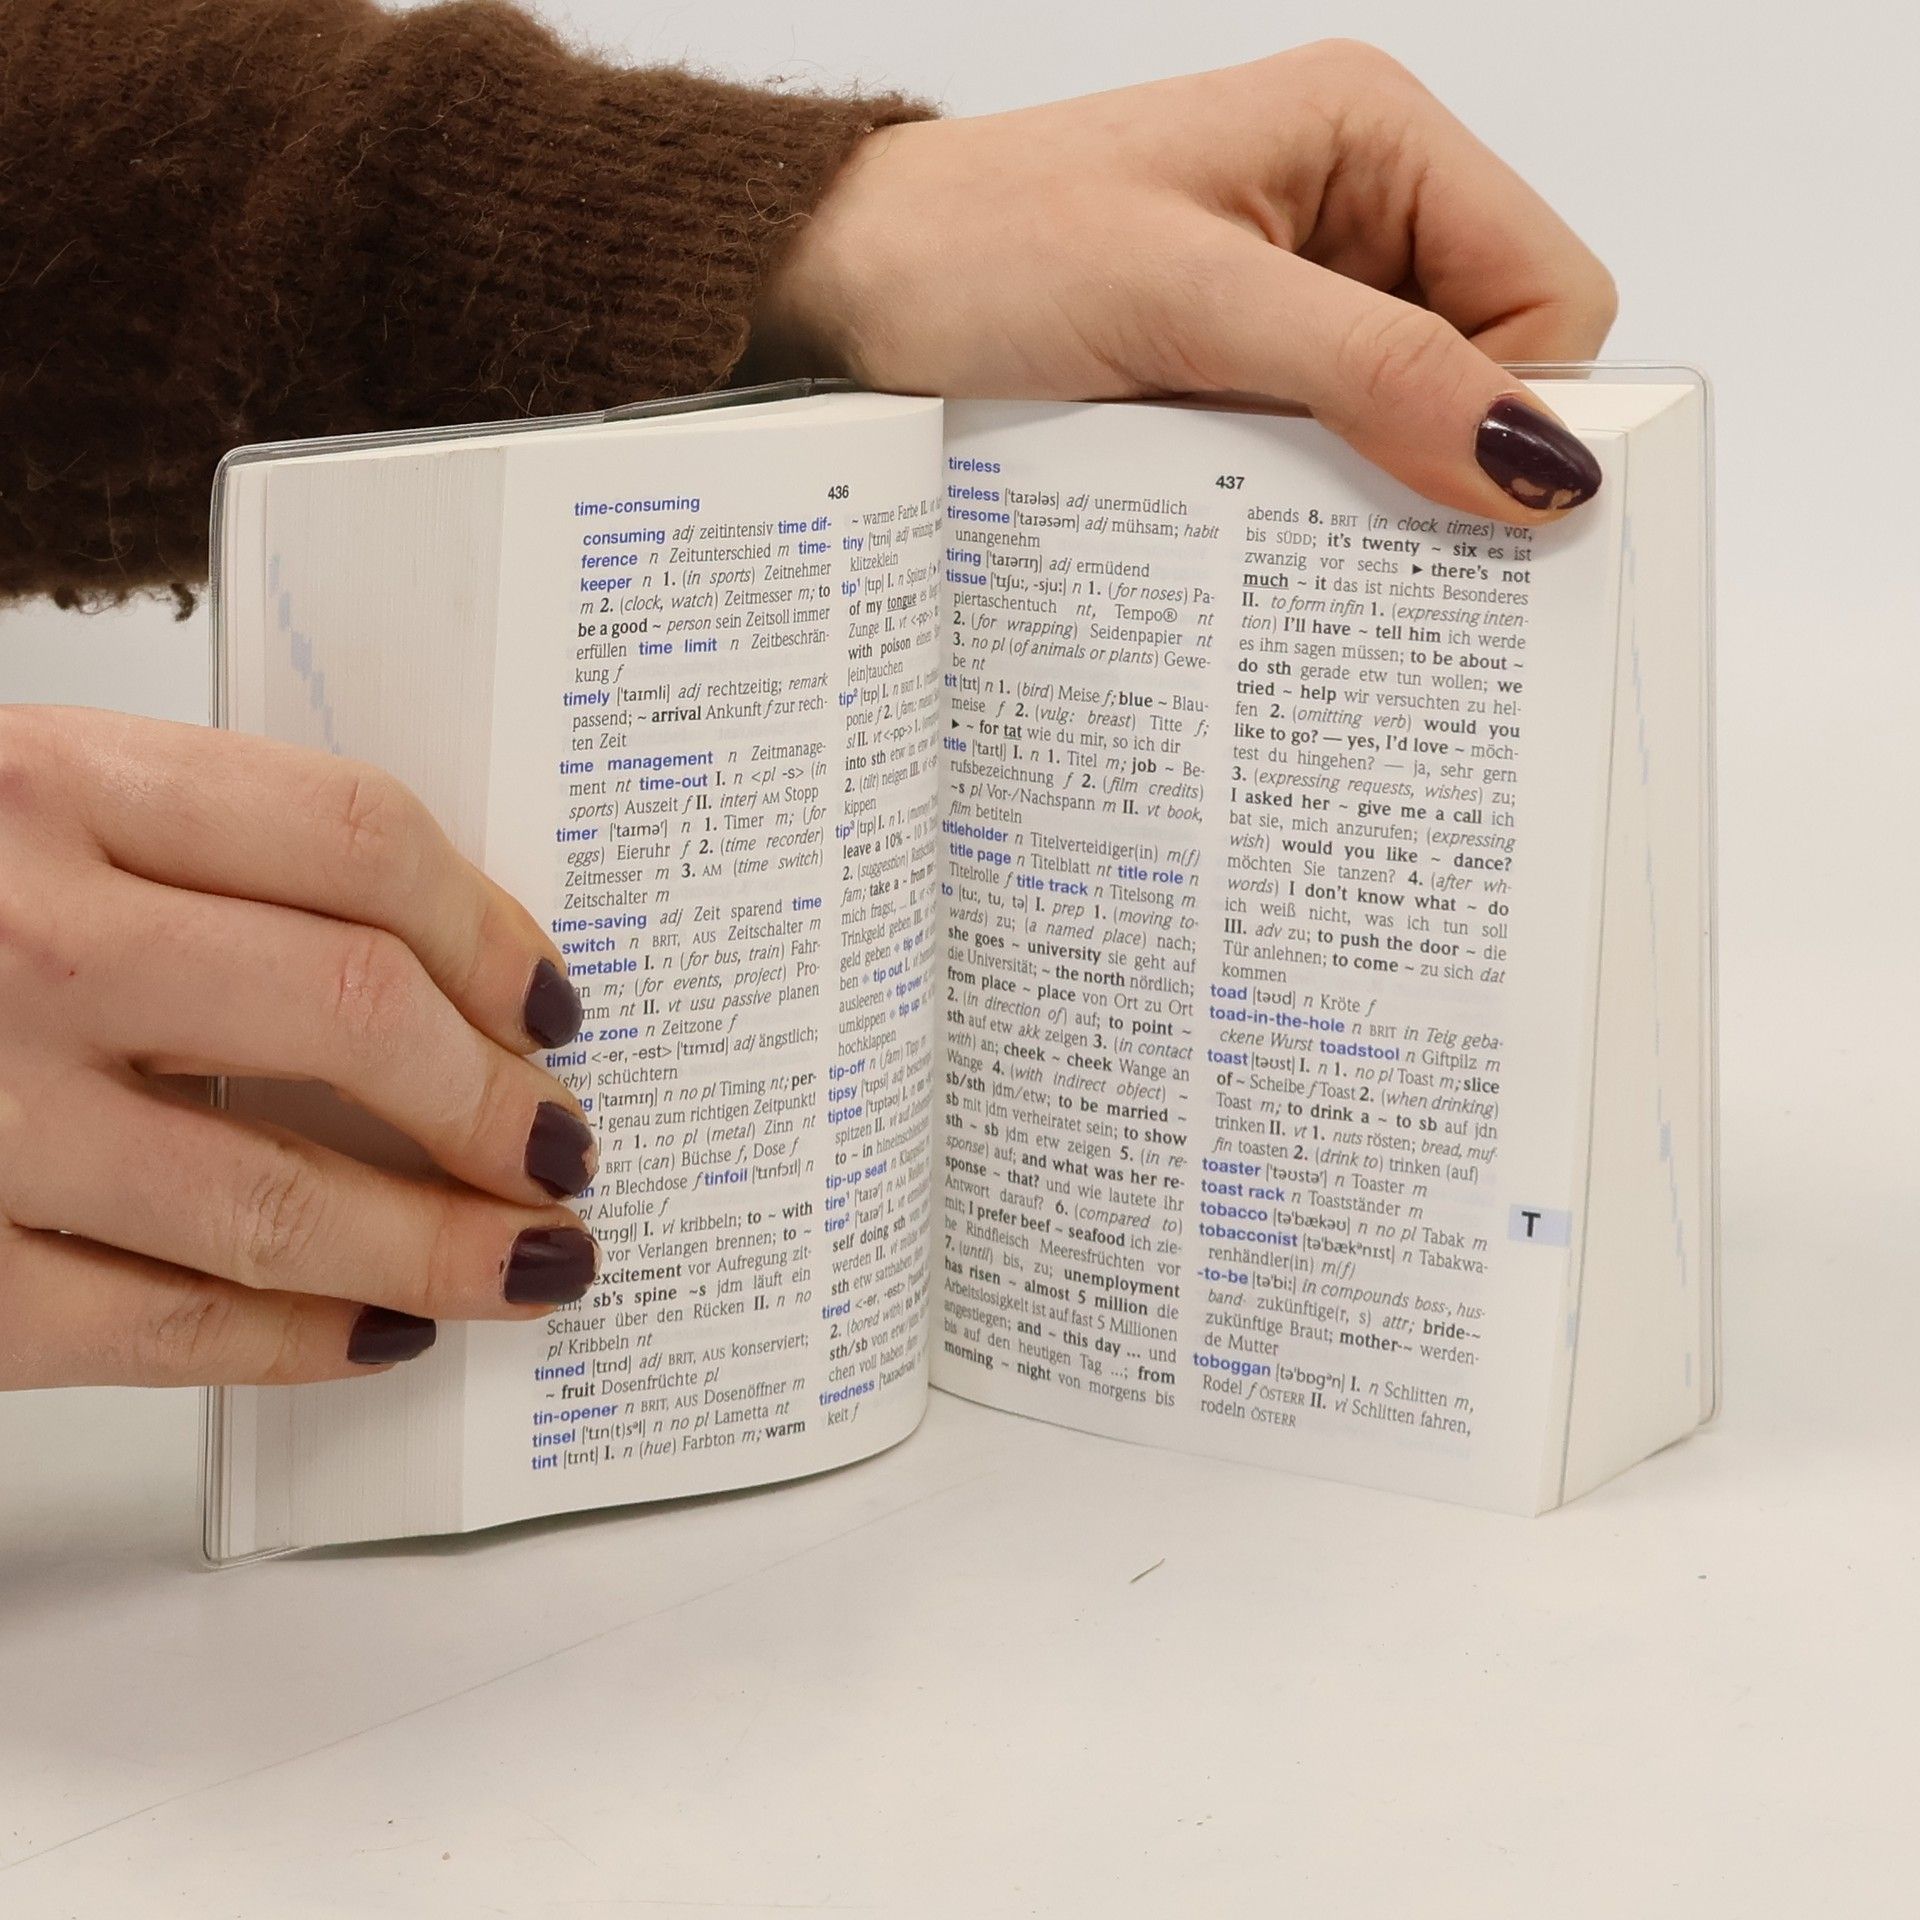 time-consuming
436
consuming adj zeitintensiv time dif-
ference n Zeitunterschied m time-
keeper n 1. (in sports) Zeitnehmer
m 2. (clock, watch) Zeitmesser m; to
be a good ~ person sein Zeitsoll immer
erfüllen time limit n Zeitbeschrän-
kung f
timely ['taɪmli] adj rechtzeitig; remark
passend; ~ arrival Ankunft f zur rech-
ten Zeit
time management n Zeitmanage-
ment nt time-out I. n <pl -s> (in
sports) Auszeit f II. interj AM Stopp
timer ['taɪməʳ] n 1. Timer m; (for
eggs) Eieruhr f 2. (time recorder)
Zeitmesser m 3. AM (time switch)
Zeitschalter m
time-saving adj Zeit sparend time
switch n BRIT, AUS Zeitschalter m
imetable I. n (for bus, train) Fahr-
an m; (for events, project) Pro-
mm nt II. vt usu passive planen
ne zone n Zeitzone f
timid <-er, -est> ['tɪmɪd] adj ängstlich;
(shy) schüchtern
g ['taɪmɪŋ] n no pl Timing nt; per-
~! genau zum richtigen Zeitpunkt!
] n 1. no pl (metal) Zinn nt
BRIT (can) Büchse f, Dose f
n n Blechdose f tinfoil ['tɪnfɔɪl] n
pl Alufolie f
['tɪŋgl] I. vi kribbeln; to ~ with
vor Verlangen brennen; to ~
excitement vor Aufregung zit-
tern; sb's spine ~s jdm läuft ein
Schauer über den Rücken II. n no
pl Kribbeln nt
tinned [tɪnd] adj BRIT, AUS konserviert;
~ fruit Dosenfrüchte pl
tin-opener n BRIT, AUS Dosenöffner m
tinsel ['tɪn(t)sᵊl] n no pl Lametta nt
tint [tɪnt] I. n (hue) Farbton m; warm
~ warme Farbe II. vt
tiny ['tɪni] adj winzig
klitzeklein
tip¹ [tɪp] I. n Spitze f
of my tongue es liegt
Zunge II. vt <-pp->
with poison einen
[ein]tauchen
tip² [tɪp] I. n BRIT 1.
ponie f 2. (fam: mess)
sl II. vt <-pp-> 1.
into sth etw in etw
2. (tilt) neigen III. vi
kippen
tip³ [tɪp] I. n 1. (money)
leave a 10% ~ 10 %
2. (suggestion)
fam; take a ~ from me
mich fragst, ... II. vt
Trinkgeld geben III. vi
geld geben ◆ tip off
ben ◆ tip out I. vt
ausleeren ◆ tip over
umkippen ◆ tip up
hochklappen
tip-off n (fam) Tipp
tipsy ['tɪpsi] adj beschwipst
tiptoe ['tɪptəʊ] I. n
spitzen II. vi auf
to ~ in hineinschleichen
tip-up seat n Klappsitz
tire¹ ['taɪəʳ] n AM Reifen
tire² ['taɪəʳ] I. vt
self doing sth
werden II. vi müde
sth etw satthaben
tired <-er, -est>
2. (bored with) to be
sth/sb von etw/jdm
chen voll haben
tiredness
keit f
tireless
437
tireless ['taɪələs] adj unermüdlich
tiresome ['taɪəsəm] adj mühsam; habit
unangenehm
tiring ['taɪərɪŋ] adj ermüdend
tissue ['tɪʃu:, -sju:] n 1. (for noses) Pa-
piertaschentuch nt, Tempo® nt
2. (for wrapping) Seidenpapier nt
3. no pl (of animals or plants) Gewe-
be nt
tit [tɪt] n 1. (bird) Meise f; blue ~ Blau-
meise f 2. (vulg: breast) Titte f;
▶ ~ for tat wie du mir, so ich dir
title ['taɪtl] I. n 1. Titel m; job ~ Be-
rufsbezeichnung f 2. (film credits)
~s pl Vor-/Nachspann m II. vt book,
film betiteln
titleholder n Titelverteidiger(in) m(f)
title page n Titelblatt nt title role n
Titelrolle f title track n Titelsong m
to [tu:, tu, tə] I. prep 1. (moving to-
wards) zu; (a named place) nach;
she goes ~ university sie geht auf
die Universität; ~ the north nördlich;
from place ~ place von Ort zu Ort
2. (in direction of) auf; to point ~
sth auf etw akk zeigen 3. (in contact
with) an; cheek ~ cheek Wange an
Wange 4. (with indirect object) ~
sb/sth jdm/etw; to be married ~
sb mit jdm verheiratet sein; to show
sth ~ sb jdm etw zeigen 5. (in re-
sponse) auf; and what was her re-
sponse ~ that? und wie lautete ihr
Antwort darauf? 6. (compared to)
mit; I prefer beef ~ seafood ich zie-
he Rindfleisch Meeresfrüchten vor
7. (until) bis, zu; unemployment
has risen ~ almost 5 million die
Arbeitslosigkeit ist auf fast 5 Millionen
angestiegen; and ~ this day ... und
bis auf den heutigen Tag ...; from
morning ~ night von morgens bis
abends 8. BRIT (in clock times) vor,
bis SÜDD; it's twenty ~ six es ist
zwanzig vor sechs ▶ there's not
much ~ it das ist nichts Besonderes
II. to form infin 1. (expressing inten-
tion) I'll have ~ tell him ich werde
es ihm sagen müssen; to be about ~
do sth gerade etw tun wollen; we
tried ~ help wir versuchten zu hel-
fen 2. (omitting verb) would you
like to go? — yes, I'd love ~ möch-
test du hingehen? — ja, sehr gern
3. (expressing requests, wishes) zu;
I asked her ~ give me a call ich
bat sie, mich anzurufen; (expressing
wish) would you like ~ dance?
möchten Sie tanzen? 4. (after wh-
words) I don't know what ~ do
ich weiß nicht, was ich tun soll
III. adv zu; to push the door ~ die
Tür anlehnen; to come ~ zu sich dat
kommen
toad [təʊd] n Kröte f
toad-in-the-hole n BRIT in Teig geba-
ckene Wurst toadstool n Giftpilz m
toast [təʊst] I. n 1. no pl Toast m; slice
of ~ Scheibe f Toast 2. (when drinking)
Toast m; to drink a ~ to sb auf jdn
trinken II. vt 1. nuts rösten; bread, muf-
fin toasten 2. (drink to) trinken (auf)
toaster ['təʊstəʳ] n Toaster m
toast rack n Toastständer m
tobacco [tə'bækəʊ] n no pl Tabak m
tobacconist [tə'bækᵊnɪst] n Tabakwa-
renhändler(in) m(f)
-to-be [tə'bi:] in compounds boss-, hus-
band- zukünftige(r, s) attr; bride-~
zukünftige Braut; mother-~ werden-
de Mutter
toboggan [tə'bɒgᵊn] I. n Schlitten m,
Rodel f ÖSTERR II. vi Schlitten fahren,
rodeln ÖSTERR
T